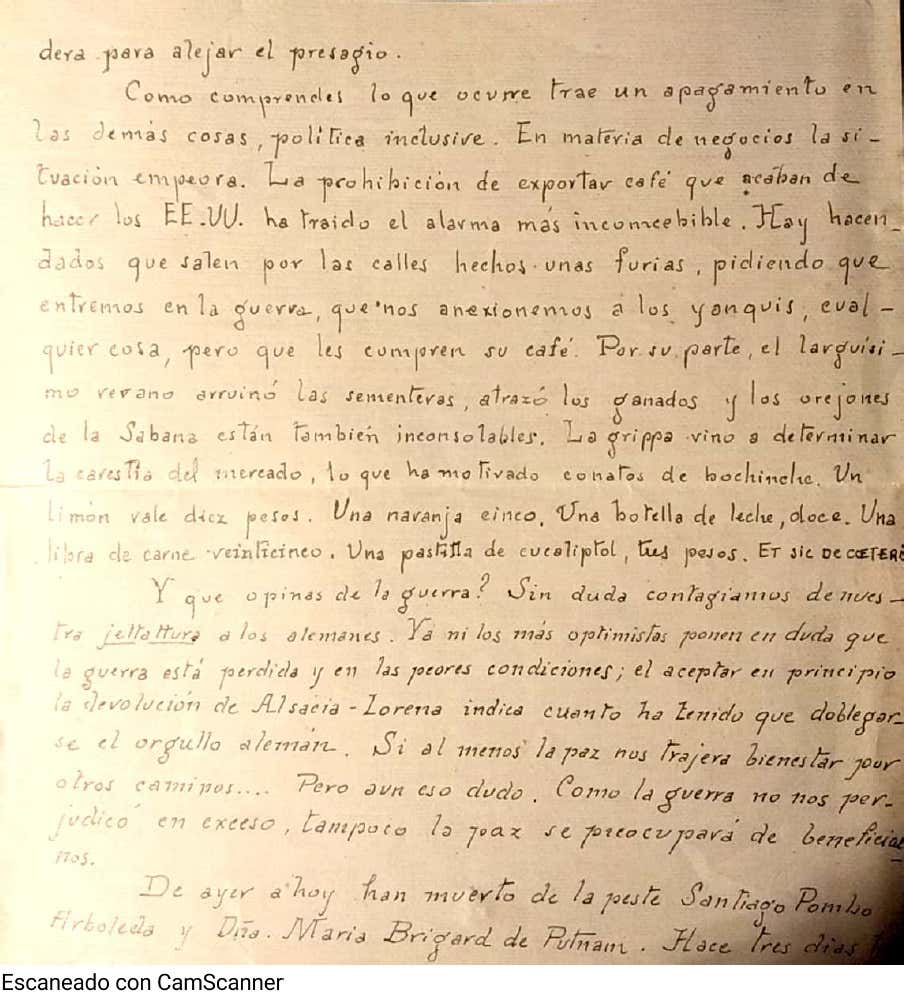 dera para alejar el presagio.
Como comprendes lo que ocurre trae un apagamiento en
las demás cosas, política inclusive. En materia de negocios la si-
tuación empeora. La prohibición de exportar café que acaban de
hacer los EE.UU. ha traido el alarma más inconcebible. Hay hacen-
dados que salen por las calles hechos unas furias, pidiendo que
entremos en la guerra, que nos anexionemos a los yanquis, cual-
quier cosa, pero que les compren su café. Por su parte, el larguísi-
mo verano arruinó las sementeras, atrazó los ganados y los orejones
de la Sabana están también inconsolables. La grippa vino a determinar
la carestía del mercado, lo que ha motivado conatos de bochinche. Un
limón vale diez pesos. Una naranja cinco. Una botella de leche, doce. Una
libra de carne veinticinco. Una pastilla de eucaliptol, tres pesos. ET SIC DE CŒTERO
Y que opinas de la guerra? Sin duda contagiamos de nues-
tra jettattura a los alemanes. Ya ni los más optimistas ponen en duda que
la guerra está perdida y en las peores condiciones; el aceptar en principio
la devolución de Alsacia-Lorena indica cuanto ha tenido que doblegar-
se el orgullo alemán. Si al menos la paz nos trajera bienestar por
otros caminos.... Pero aun eso dudo. Como la guerra no nos per-
judicó en exceso, tampoco la paz se preocupará de beneficiar
nos.
De ayer a hoy han muerto de la peste Santiago Pombo
Arboleda y Dña. Maria Brigard de Putnam. Hace tres dias
Escaneado con CamScanner